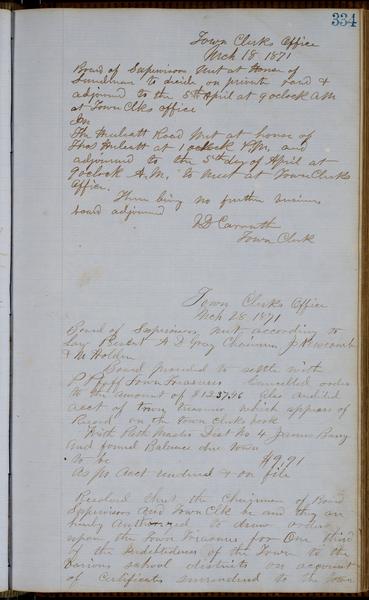 334
Town Clerks Office
Mch 18 1871
Board of Supervisors Met at House of
to decide on private road &
adjourned to the 5th April at 9 oclock AM
at Town Clks office
In
The Hulsatt Road Met at house of
Thos Hulsatt at 1 oclock P.M. and
adjourned to the 5th day of April at
9 oclock A.M. to meet at Town Clerks
Office.
There being no further business
board adjourned
Town Clerk
Town Clerks Office
Mch 28 1871
Board of Supervisors met according to
Law Present A D Gray Chairman J Newcomb
& M Holden
Board proceeded to settle with
P Town Treasurer Cancelled orders
to the amount of Also audited
acct of Town Treasurer which appears of
Record on the Town Clerks book
With Path Master Dist No 4 James Barry
and found Balance due town
to be $9.91
As pr Acct rendered & on file
Resolved that the Chairman of Board
Supervisors and Town Clk be and they are
hereby Authorized to draw orders
upon the Town Treasurer for One third
of the Indebtedness of the Town to the
various school districts on account
of Certificates surrendered to the Town